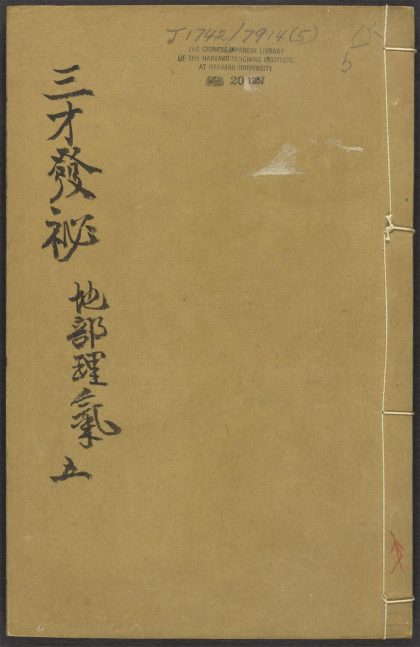 J1742/7914(5)
5
THE CHINESE-JAPANESE LIBRARY
OF THE HARVARD-YENCHING INSTITUTE
AT HARVARD UNIVERSITY
20 1957
三才發祕
地部理氣
五